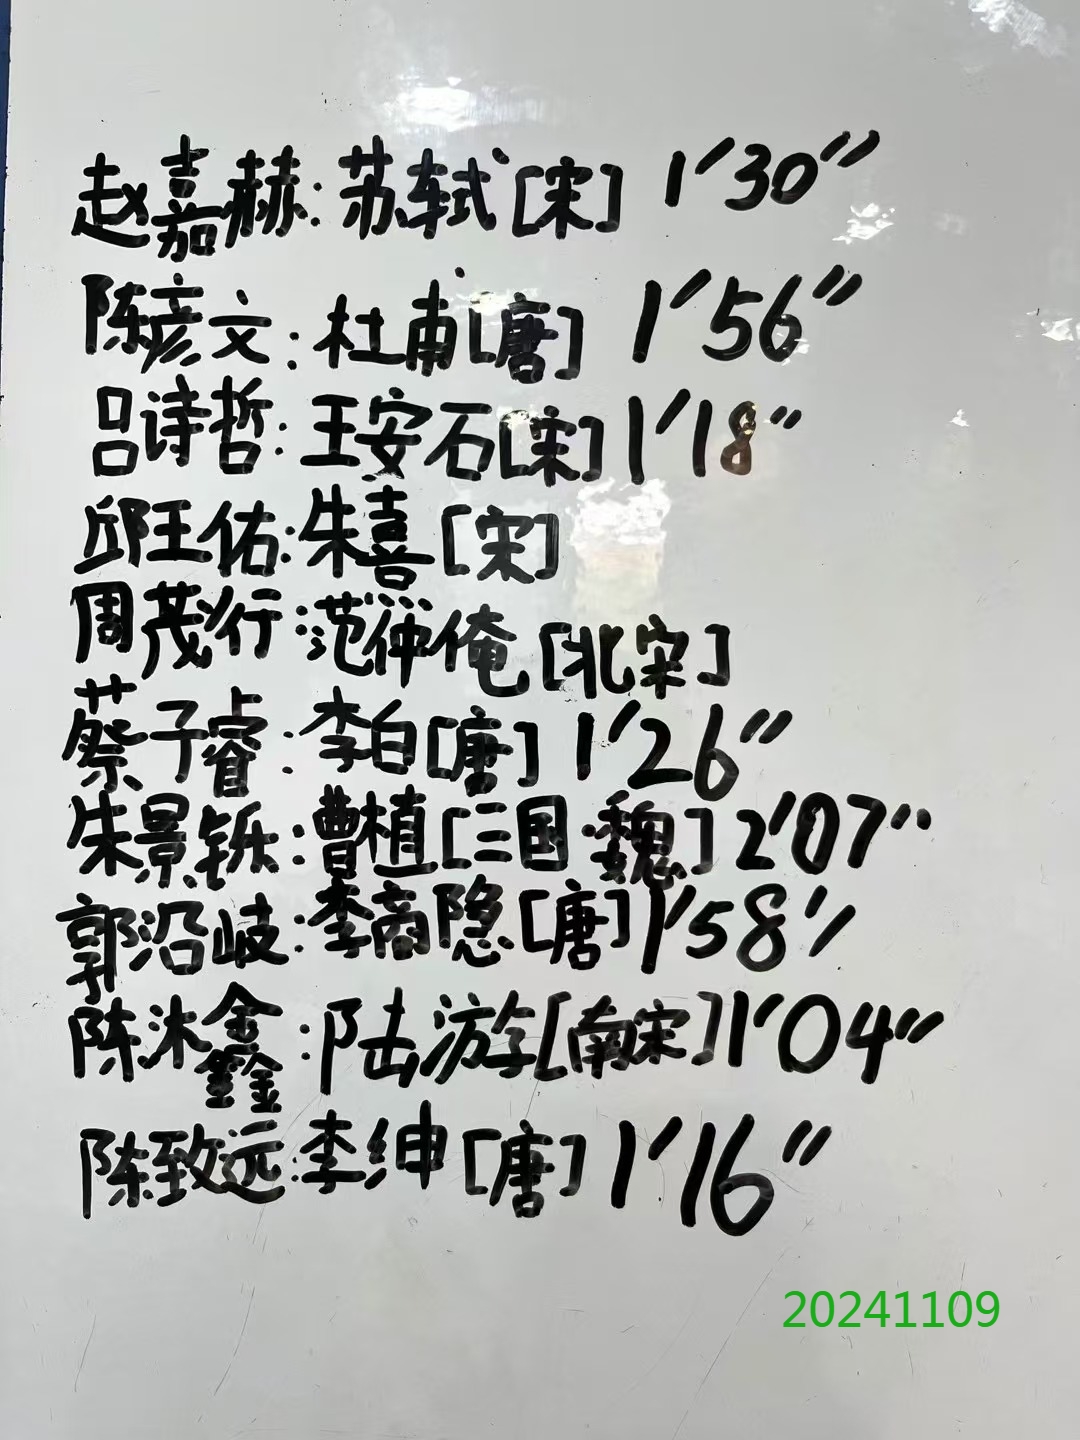 赵嘉赫:苏轼[宋] 1′30″
陈彦文:杜甫[唐] 1′56″
吕诗哲:王安石[宋] 1′18″
邱王佑:朱熹[宋]
周茂行:范仲俺[北宋]
蔡子睿:李白[唐] 1′26″
朱景铄:曹植[三国·魏] 2′07″
郭沿岐:李商隐[唐] 1′58″
陈沐鑫:陆游[南宋] 1′04″
陈致远:李绅[唐] 1′16″
20241109